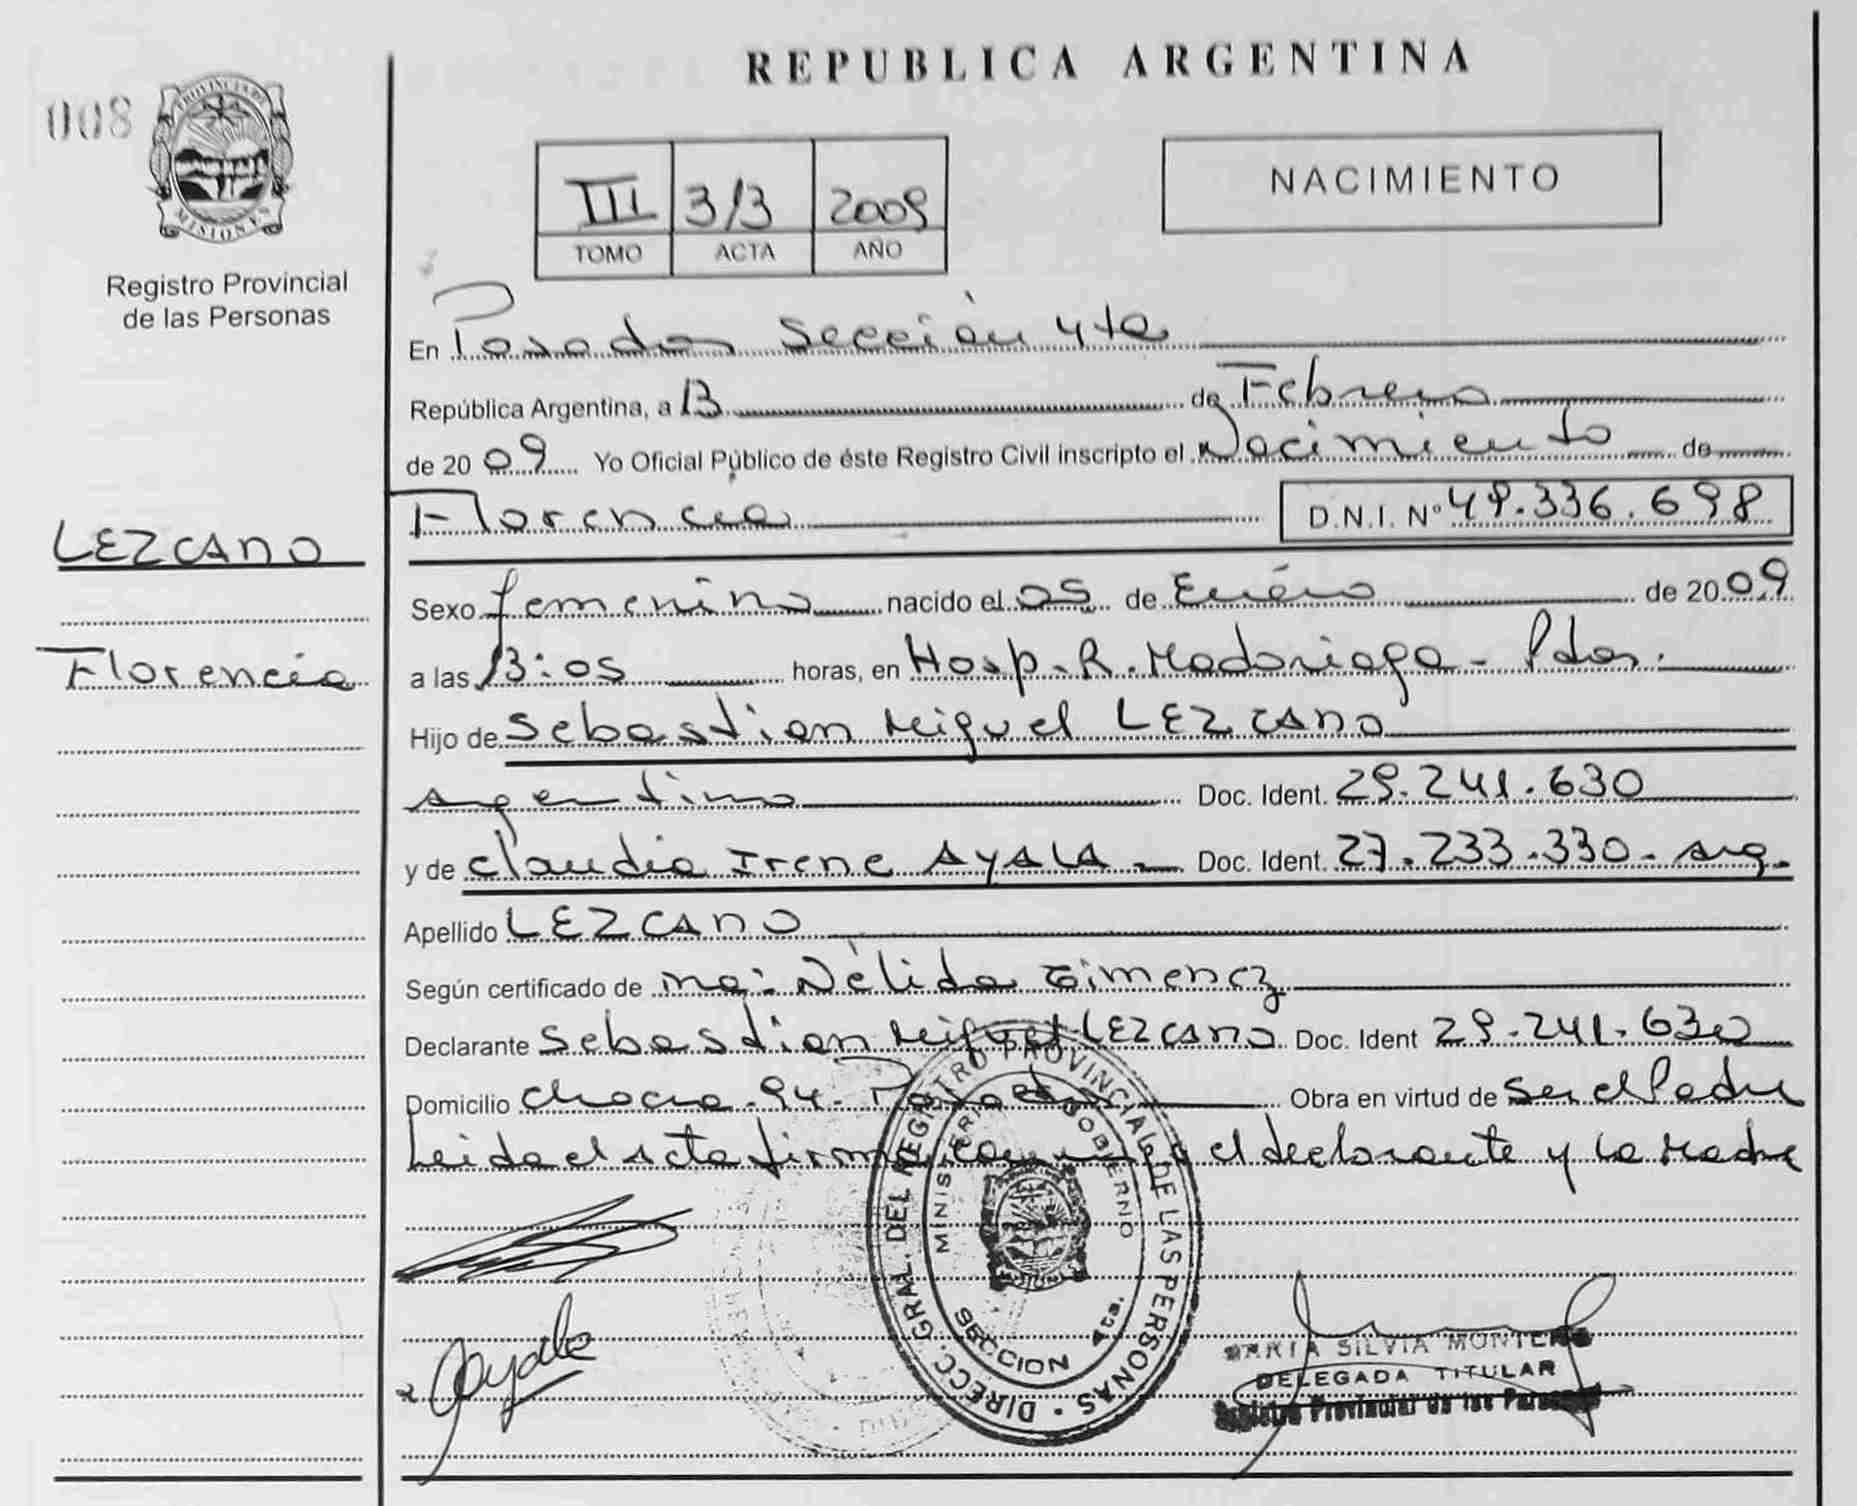 008
PROVINCIA DE
MISIONES
Registro Provincial
de las Personas
LEZCANO
Florencia
REPUBLICA ARGENTINA
III 3/3 2009
TOMO ACTA AÑO
NACIMIENTO
En Posadas Sección 4ta
República Argentina, a 13 de Febrero
de 2009 Yo Oficial Público de éste Registro Civil inscripto el Nacimiento de
Florencia D.N.I. Nº 49.336.698
Sexo femenino nacido el 05 de Enero de 2009
a las 13:05 horas, en Hosp. R. Madariaga - Pdas.
Hijo de Sebastian Miguel LEZCANO
argentino Doc. Ident. 29.241.630
y de Claudia Irene AYALA Doc. Ident. 27.233.330 - Arg.
Apellido LEZCANO
Según certificado de Ma: Nélida Gimenez
Declarante Sebastian Miguel LEZCANO Doc. Ident 29.241.630
Domicilio Chacra 94 - Posadas Obra en virtud de Ser el Padre
Leida el Acta firma conmigo el declarante y la Madre
DIRECC. GRAL. DEL REGISTRO PROVINCIAL DE LAS PERSONAS
MINISTERIO GOBIERNO
SECCION 4ta.
Ayala
MARIA SILVIA MONTERO
DELEGADA TITULAR
Registro Provincial de las Personas